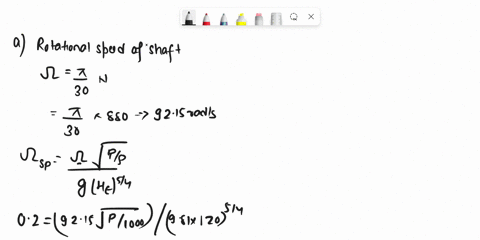 a) Rotational speed of shaft
Ω = π/30 N
= π/30 × 880 → 92.15 rad/s
Ωsp = Ω √P/ρ / g(HE)^5/4
0.2 = (92.15 √P/1000) / (9.81×120)^5/4